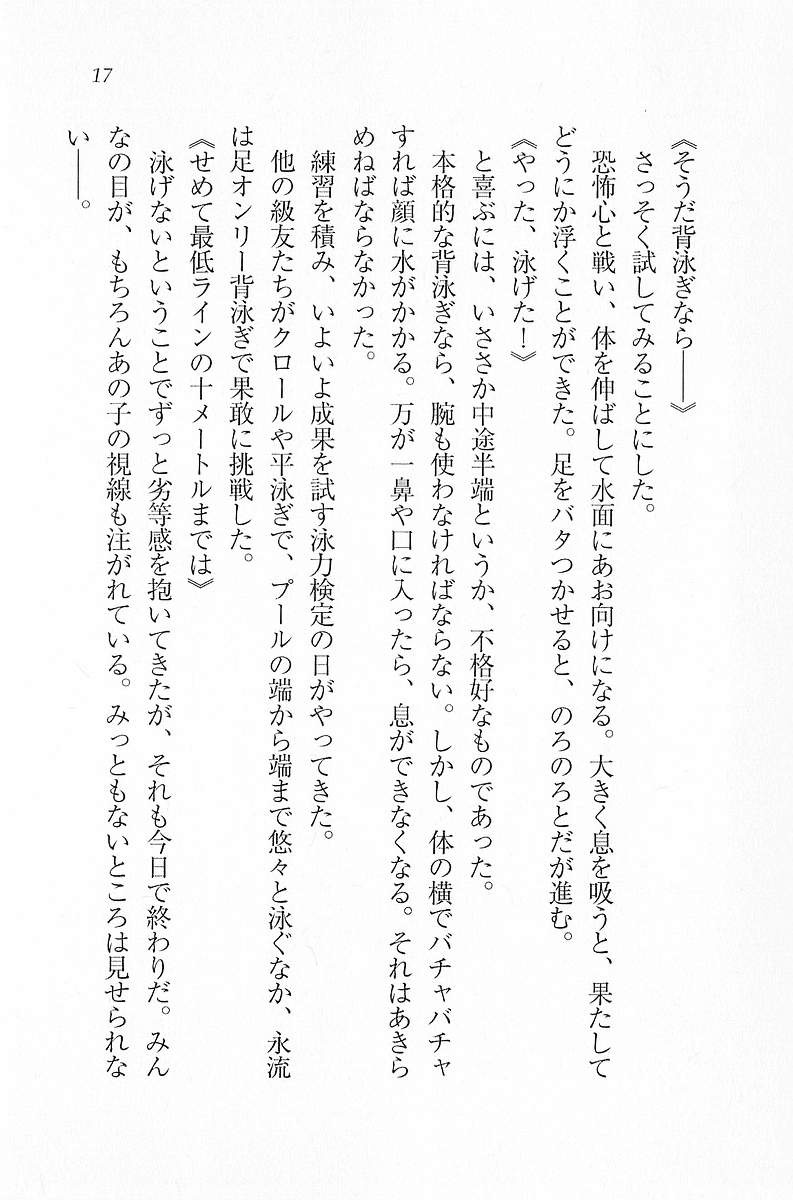 17
《そうだ背泳ぎなら――》
さっそく試してみることにした。
恐怖心と戦い、体を伸ばして水面にあお向けになる。大きく息を吸うと、果たして
どうにか浮くことができた。足をバタつかせると、のろのろとだが進む。
《やった、泳げた！》
と喜ぶには、いささか中途半端というか、不格好なものであった。
本格的な背泳ぎなら、腕も使わなければならない。しかし、体の横でバチャバチャ
すれば顔に水がかかる。万が一鼻や口に入ったら、息ができなくなる。それはあきら
めねばならなかった。
練習を積み、いよいよ成果を試す泳力検定の日がやってきた。
他の級友たちがクロールや平泳ぎで、プールの端から端まで悠々と泳ぐなか、永流
は足オンリー背泳ぎで果敢に挑戦した。
《せめて最低ラインの十メートルまでは》
泳げないということでずっと劣等感を抱いてきたが、それも今日で終わりだ。みん
なの目が、もちろんあの子の視線も注がれている。みっともないところは見せられな
い――。